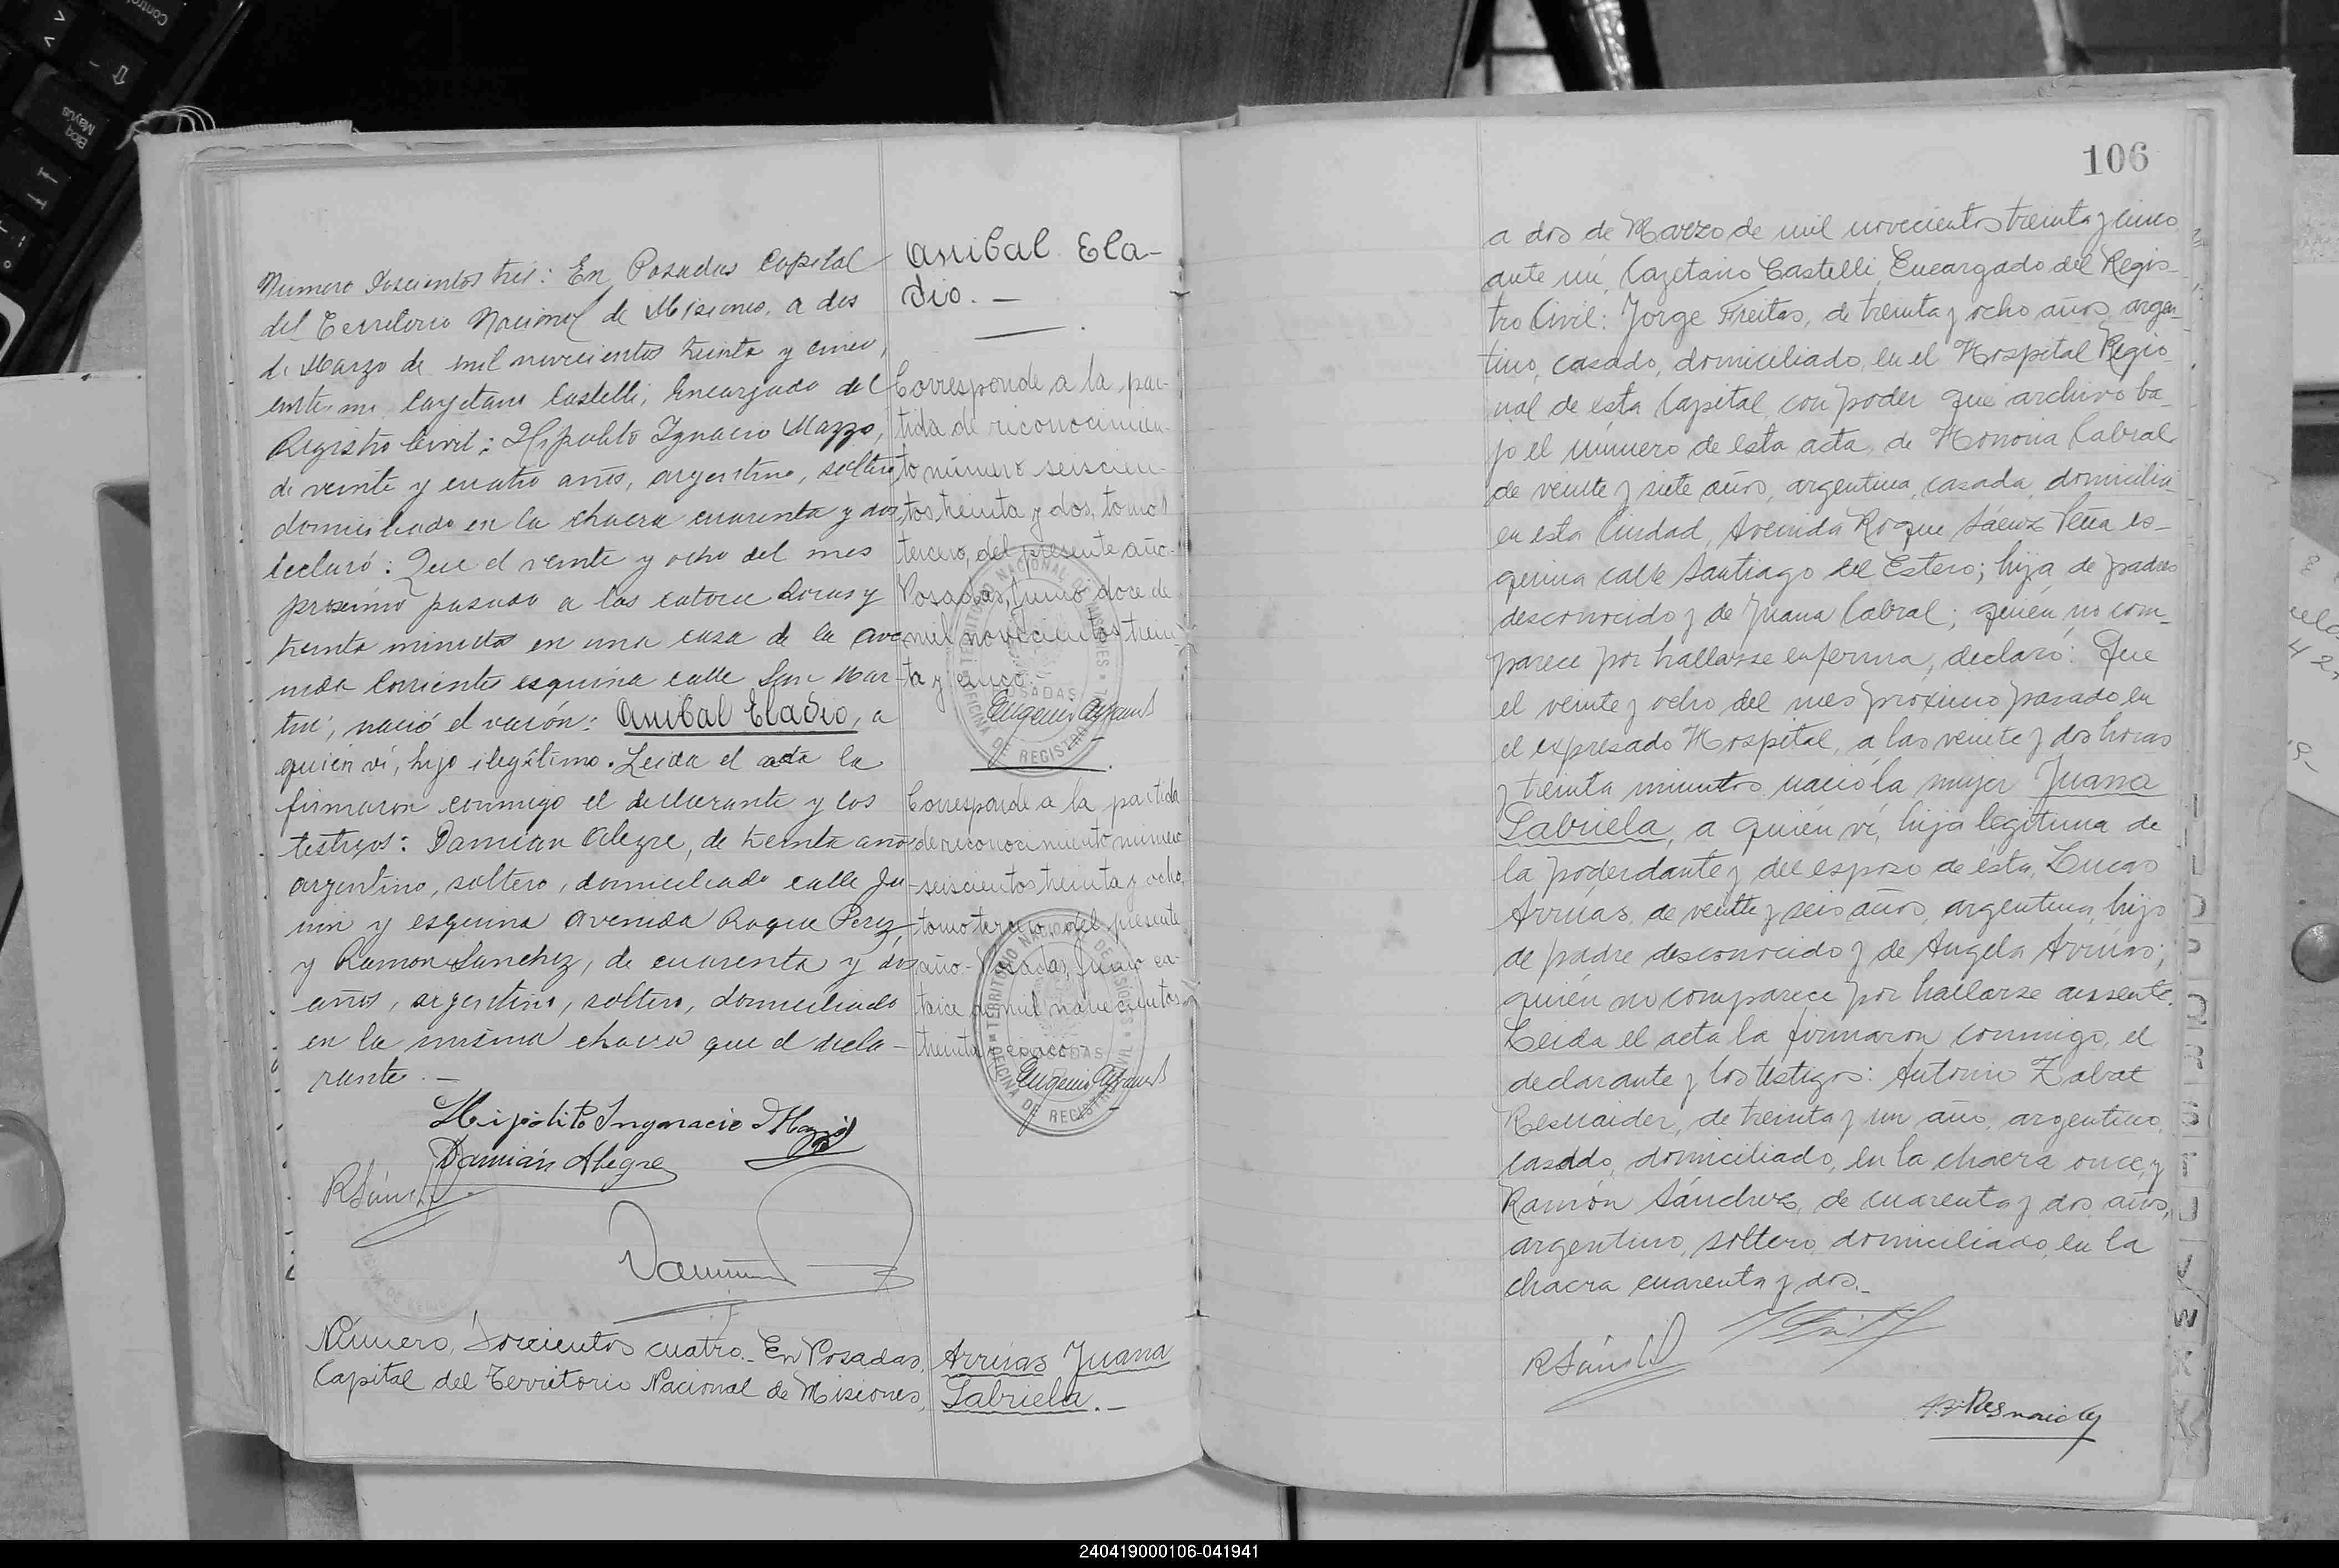 Numero doscientos tres: En Posadas Capital
del Territorio Nacional de Misiones, a dos
de Marzo de mil novecientos treinta y cinco,
ante mi, Cayetano Castelli, Encargado del
Registro Civil: Hipolito Ignacio Mazzo,
de veinte y cuatro años, argentino, soltero
domiciliado en la chacra cuarenta y dos
declaró: Que el veinte y ocho del mes
proximo pasado a las catorce horas y
treinta minutos en una casa de la ave-
nida Corrientes esquina calle San Mar-
tin, nació el varón: Anibal Eladio, a
quien ví, hijo ilegítimo. Leida el acta la
firmaron conmigo el declarante y los
testigos: Damian Alegre, de treinta años
argentino, soltero, domiciliado calle Ju-
nin y esquina Avenida Roque Perez,
y Ramon Sanchez, de cuarenta y dos
años, argentino, soltero, domiciliado
en la misma chacra que el decla-
rante. —
Hipólito Ingnacio Mazzo
Damián Alegre
RSánch
Número, Doscientos cuatro.- En Posadas,
Capital del Territorio Nacional de Misiones,
Anibal Ela-
dio. —
Corresponde a la par-
tida de reconocimien-
to número seiscien-
tos treinta y dos, tomo
tercero, del presente año.-
Posadas, Junio doce de
mil novecientos trein-
ta y cinco.-
TERRITORIO NACIONAL DE MISIONES
POSADAS
OFICINA DE REGISTRO CIVIL
Corresponde a la partida
de reconocimiento número
seiscientos treinta y ocho,
tomo tercero, del presente
año.- Posadas, Junio ca-
torce de mil novecientos
treinta y cinco.-
TERRITORIO NACIONAL DE MISIONES
POSADAS
OFICINA DE REGISTRO CIVIL
Arrúas Juana
Gabriela.—
106
a dos de Marzo de mil novecientos treinta y cinco,
ante mí, Cayetano Castelli, Encargado del Regis-
tro Civil: Jorge Freitas, de treinta y ocho años, argen-
tino, casado, domiciliado, en el Hospital Regio-
nal de ésta Capital, con poder que archivo ba-
jo el número de esta acta, de Honoria Cabral,
de veinte y siete años, argentina, casada, domicilia-
en esta Ciudad, Avenida Roque Sáenz Peña es-
quina calle Santiago del Estero; hija de padre
desconocido y de Juana Cabral; quién, no com-
parece por hallarse enferma, declaró: Que
el veinte y ocho del mes proximo pasado en
el expresado Hospital, a las veinte y dos horas
y treinta minutos nació la mujer Juana
Gabriela, a quién ví, hija legítima de
la poderdante y del esposo de ésta, Lucas
Arrúas, de veinte y seis años, argentino, hijo
de padre desconocido y de Angela Arrúas;
quién no comparece por hallarse ausente.
Leida el acta la firmaron conmigo, el
declarante y los testigos: Antonio Zabat
Resnaider, de treinta y un año, argentino,
casado, domiciliado, en la chacra once, y
Ramón Sánchez, de cuarenta y dos años,
argentino, soltero, domiciliado, en la
chacra cuarenta y dos.-
RSánch
240419000106-041941